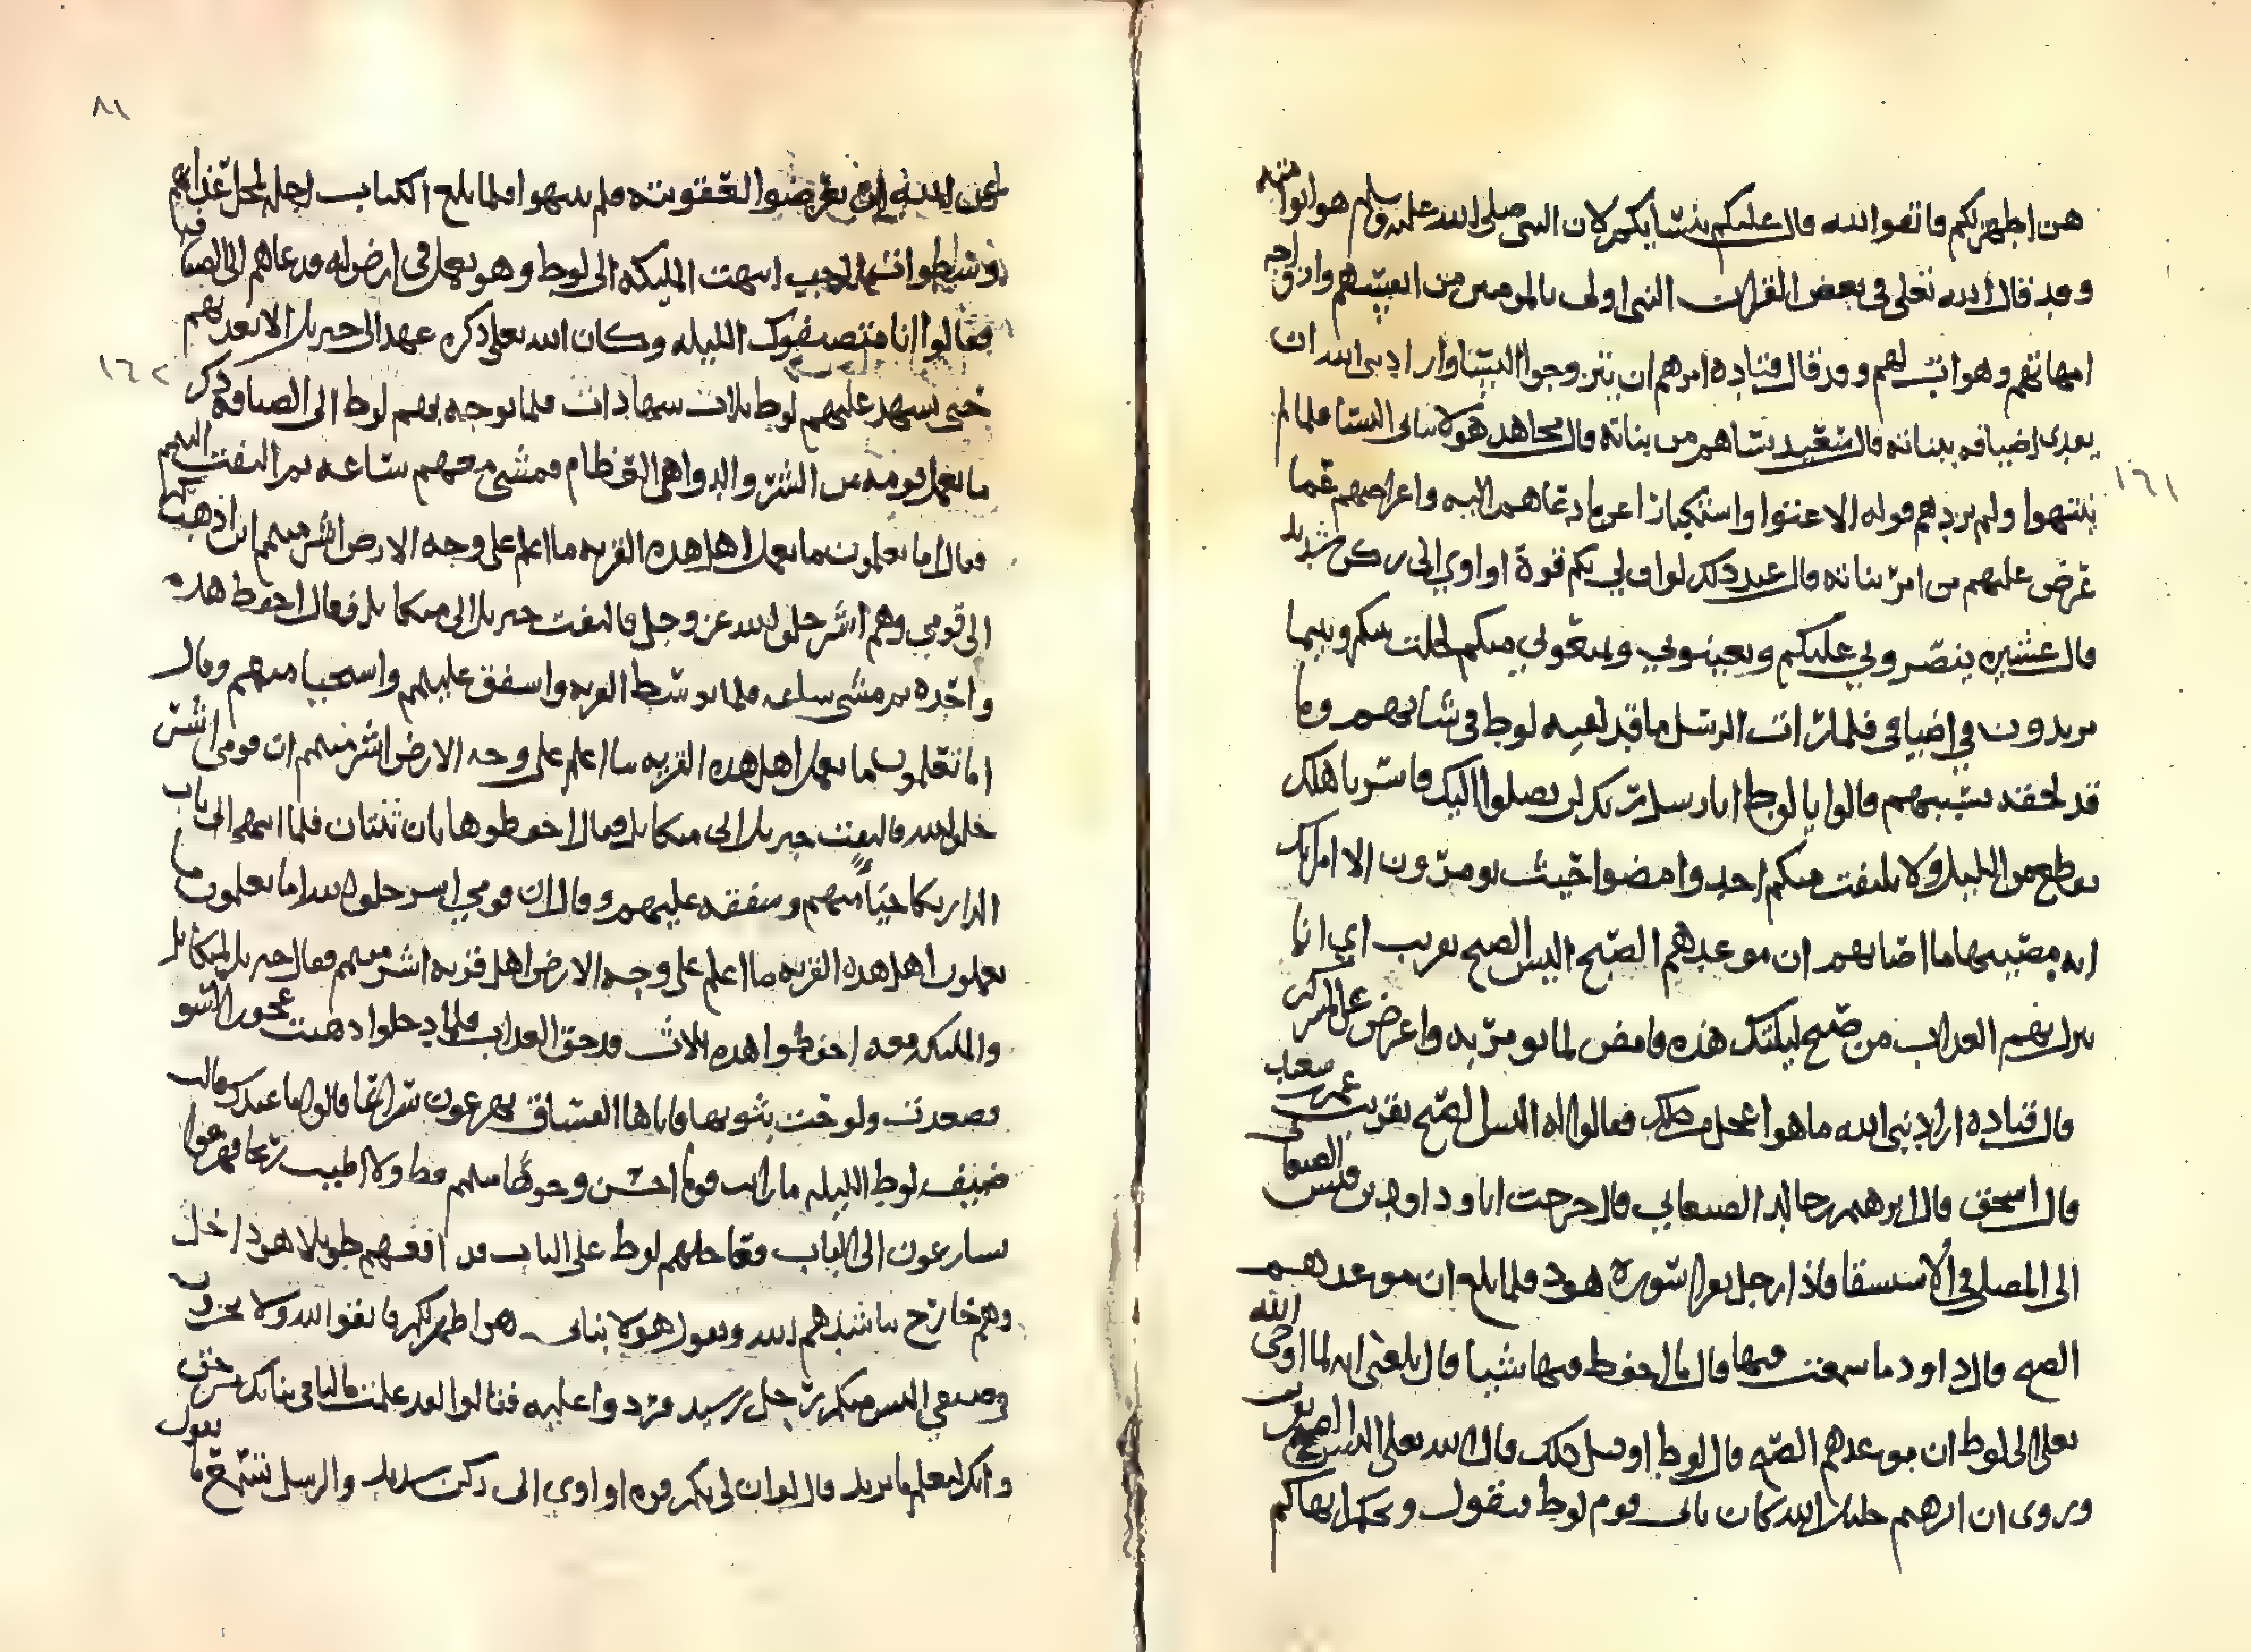 هن اطهر لكم فاتقوا الله قال عليكم بنسايكم لان النبي صلى الله عليه وسلم هو ابوا امته
وقد قال الله تعلى في بعض القران النبي اولى بالمومنين من انفسهم وازواجه
امهاتهم وهو اب لهم وقد قال قتاده امرهم ان يتزوجوا النسا واراد نبي الله ان
يفدي اضيافه ببناته قال سعيد نساهم من بناته قال مجاهد هولا بناتي النسا فلما لم
ينتهوا ولم يردهم قوله الا عتوا واستكبارا عن ما دعاهم اليه واعراضهم عما
عرض عليهم من امر بناته قال عند ذلك لو ان لي بكم قوة او اوي الى ركن شديد
قال عشيره ينصروني عليكم ويعينوني ويمنعوني منكم لحلت بينكم وبين ما
تريدون في اضيافي فلما رات الرسل ما قد لقيه لوط في شانهم وما
قد لحقه بسببهم قالوا يا لوط انا رسل ربك لن يصلوا اليك فاسر باهلك
بقطع من الليل ولا يلتفت منكم احد وامضوا حيث تومرون الا امراتك
انه مصيبها ما اصابهم ان موعدهم الصبح اليس الصبح بقريب اي انا
ننزل بهم العذاب من صبح ليلتك هذه فامض لما تومر به واعرض عن المشركين
قال قتاده اراد نبي الله ما هو اعجل من ذلك فقالوا له اليس الصبح بقريب
قال اسحق قال ابرهيم بن خالد الصنعاني قال خرجت انا وداود بن قيس الصنعاني
الى المصلى في الاستسقا فاذا رجل يقرا سورة هود فلما بلغ ان موعدهم
الصبح قال داود ما سمعت فيها قال قال احفظ فيها شيا قال بلغني انه لما اوحى الله
تعلى الى لوط ان موعدهم الصبح قال لوط او قبل ذلك قال الله تعلى اليس الصبح بقريب
وروى ان ابرهيم خليل الله كان ياتي قوم لوط فيقول ويحكم انهاكم
١٦١
٨١
عن الله ان تعرضوا لعقوبته فلم ينتهوا فلما بلغ الكتاب اجله لمحل عذابهم
انتهت المليكه الى لوط وهو يعمل في ارض له فدعاهم الى الضيافه
فقالوا انا متضيفوك الليله وكان الله تعلى ذكره عهد الى جبريل الا يعذبهم
حتى يشهد عليهم لوط ثلاث شهادات فلما توجه بهم لوط الى الضيافه ذكر
ما يعمل قومه من الشر والدواهي العظام فمشى معهم ساعه ثم التفت اليهم
فقال اما تعلمون ما يعمل اهل هذه القريه ما اعلم على وجه الارض اشر منهم اين اذهب بكم
الى قومي وهم اشر خلق الله عز وجل فالتفت جبريل الى ميكايل فقال احفظ هذه
واحده ثم مشى ساعه فلما توسط القريه واشفق عليهم واستحيا منهم وقال
اما تعلمون ما يعمل اهل هذه القريه ما اعلم على وجه الارض اشر منهم ان قومي اشر
خلق الله فالتفت جبريل الى ميكايل فقال احفظوا هاتان ثنتان فلما انتهى الى باب
الدار بكا حيا منهم وشفقه عليهم وقال ان قومي اشر خلق الله اما تعلمون ما
يعملون اهل هذه القريه ما اعلم على وجه الارض اهل قريه اشر منهم فقال جبريل لميكايل
والمليكه معه احفظوا هذه ثلاث قد حق العذاب فلما دخلوا ذهبت عجوز السو
فصعدت ولوحت بثوبها فاتاها الفساق يهرعون سراعا قالوا ما عندك قالت
ضيف لوط الليله ما رايت قوما احسن وجوها منهم قط ولا اطيب ريحا فهرعوا
يسارعون الى الباب فعاجلهم لوط على الباب فدافعهم طويلا هو داخل
وهم خارج يناشدهم الله ويقول هولا بناتي هن اطهر لكم فاتقوا الله ولا تخزون
في ضيفي اليس منكم رجل رشيد فردوا عليه فقالوا لقد علمت ما لنا في بناتك من حق
وانك لتعلم ما نريد قال لو ان لي بكم قوه او اوي الى ركن شديد والرسل تسمع ما يقول
١٦٢